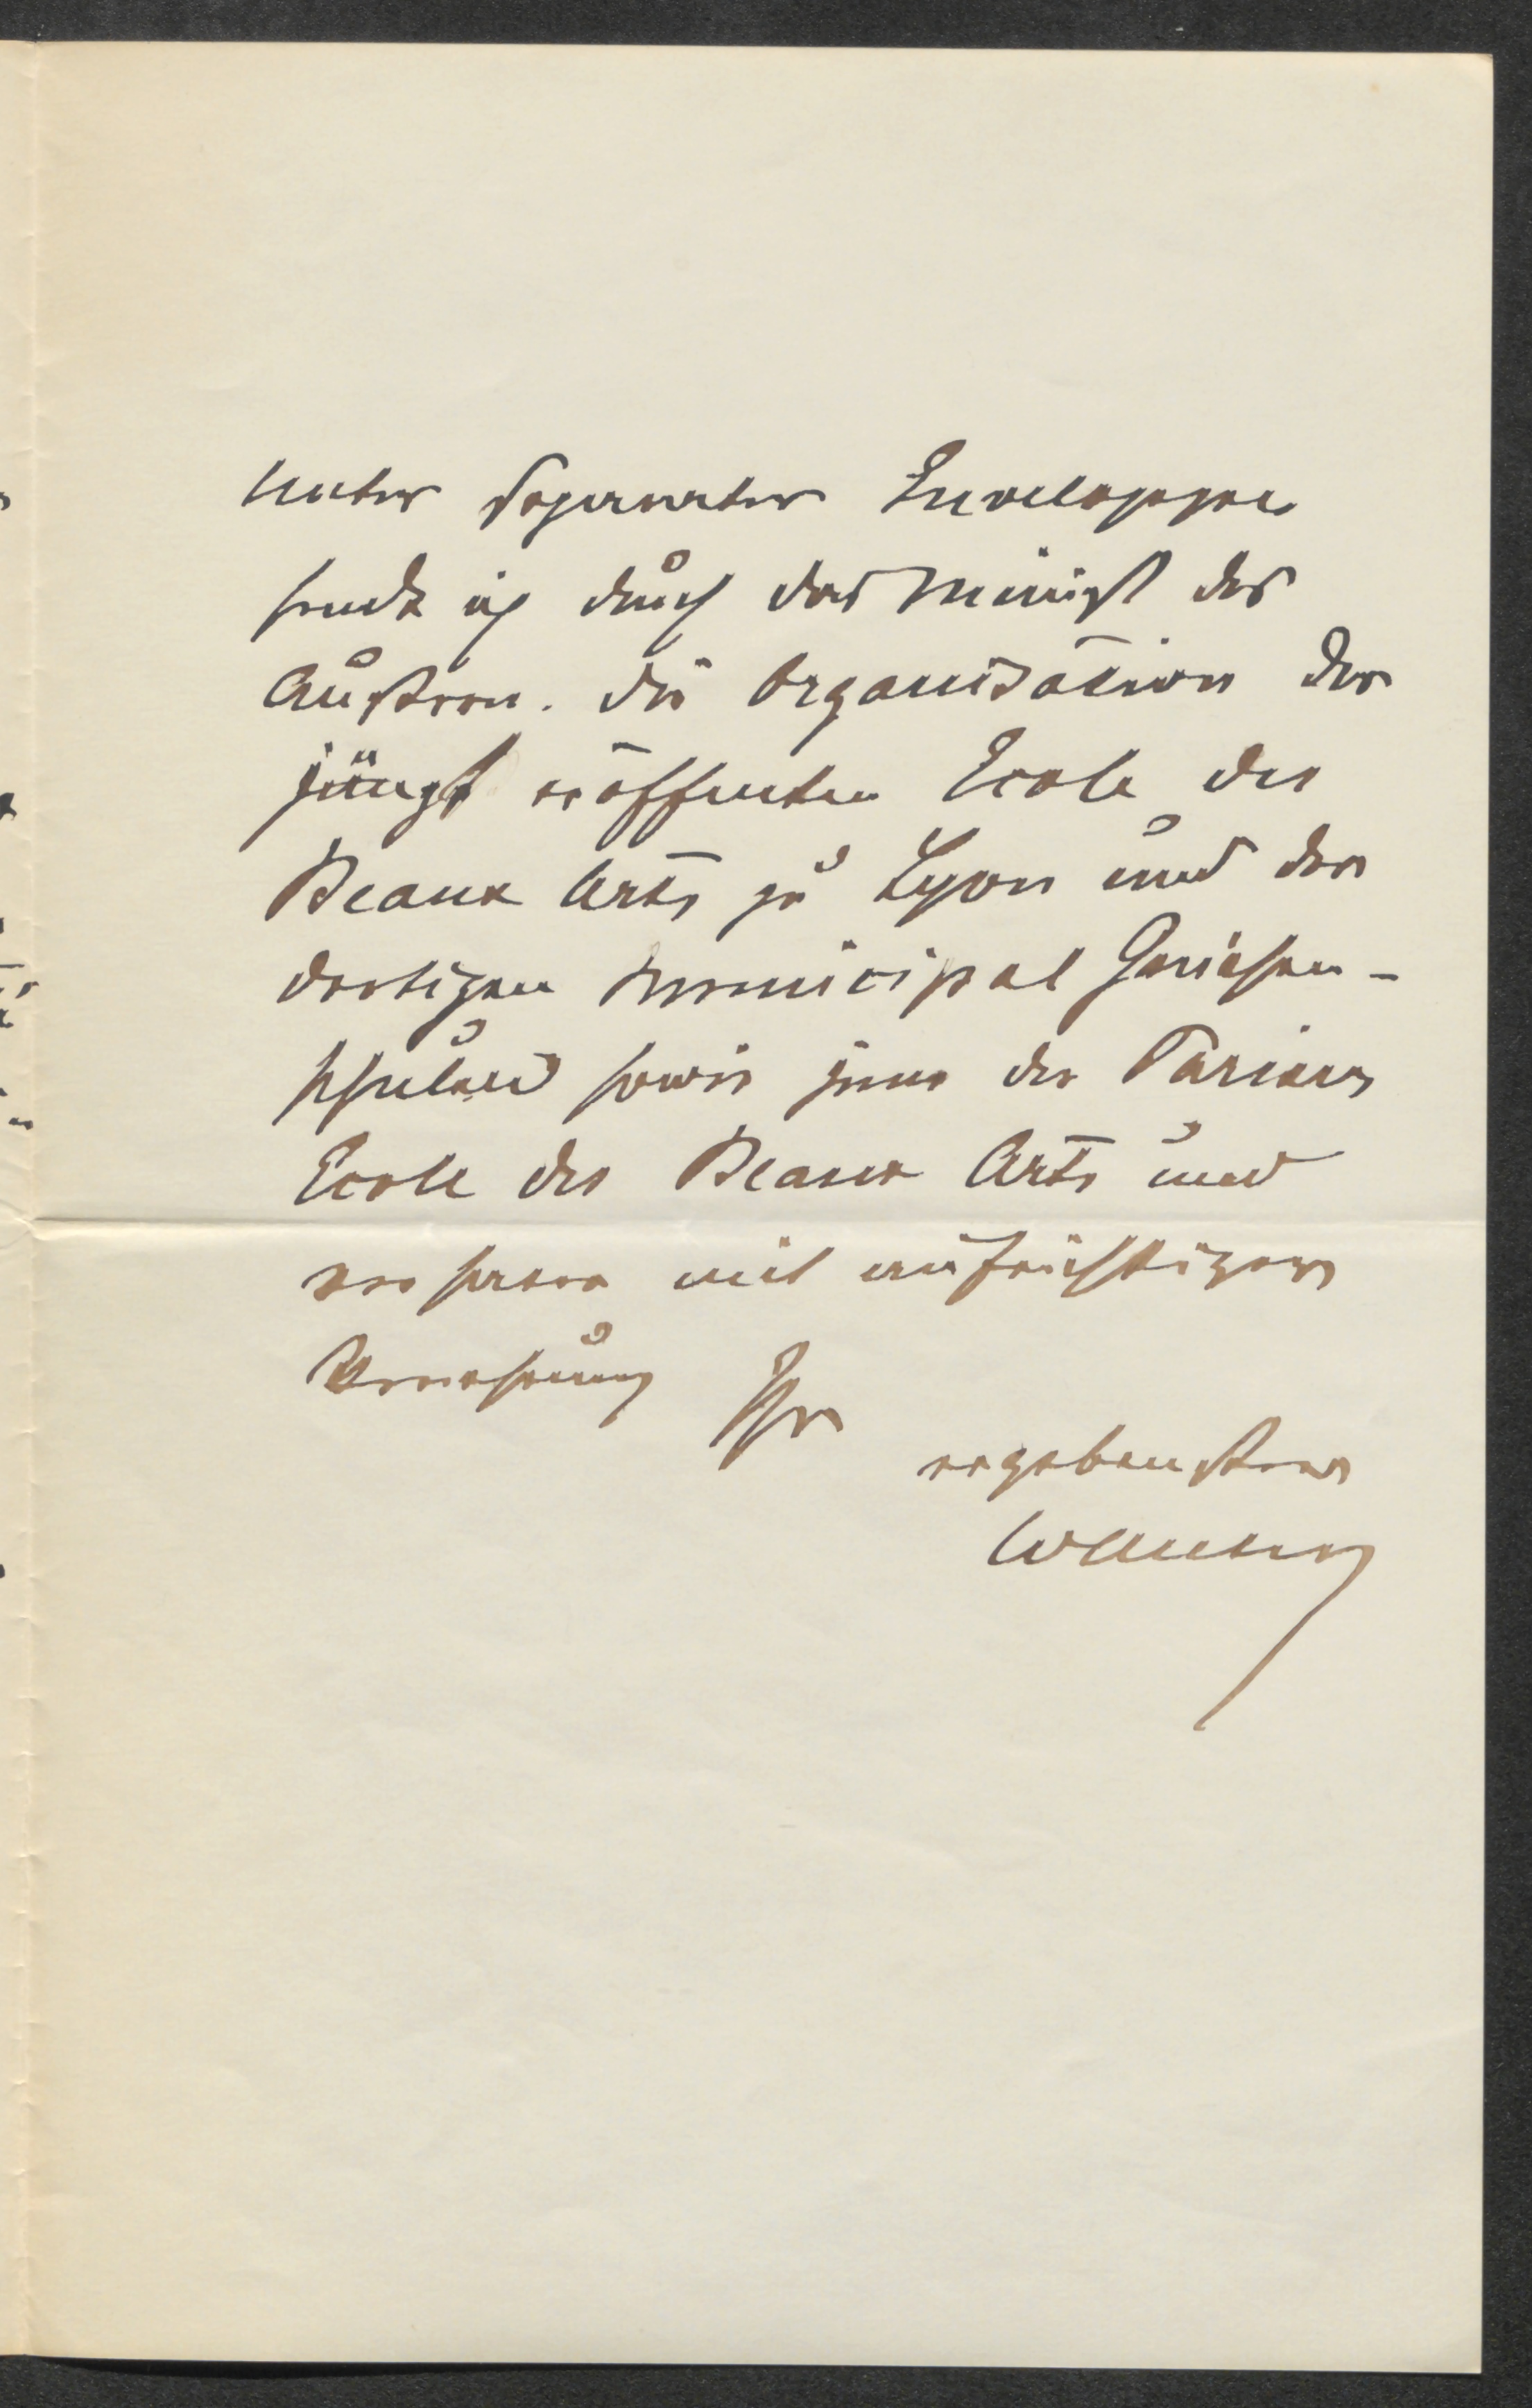 Unter separater Enveloppe
sende ich durch das Minist des
Äußern. die Organisation der
jüngst eröffneten Ecole des
Beaux Arts zu Lyon und der
dortigen Municipal Zeichen-
schulen sowie jene der Pariser
Ecole des Beaux Arts und
verharre mit aufrichtiger
Verehrung Ihr
ergebenster